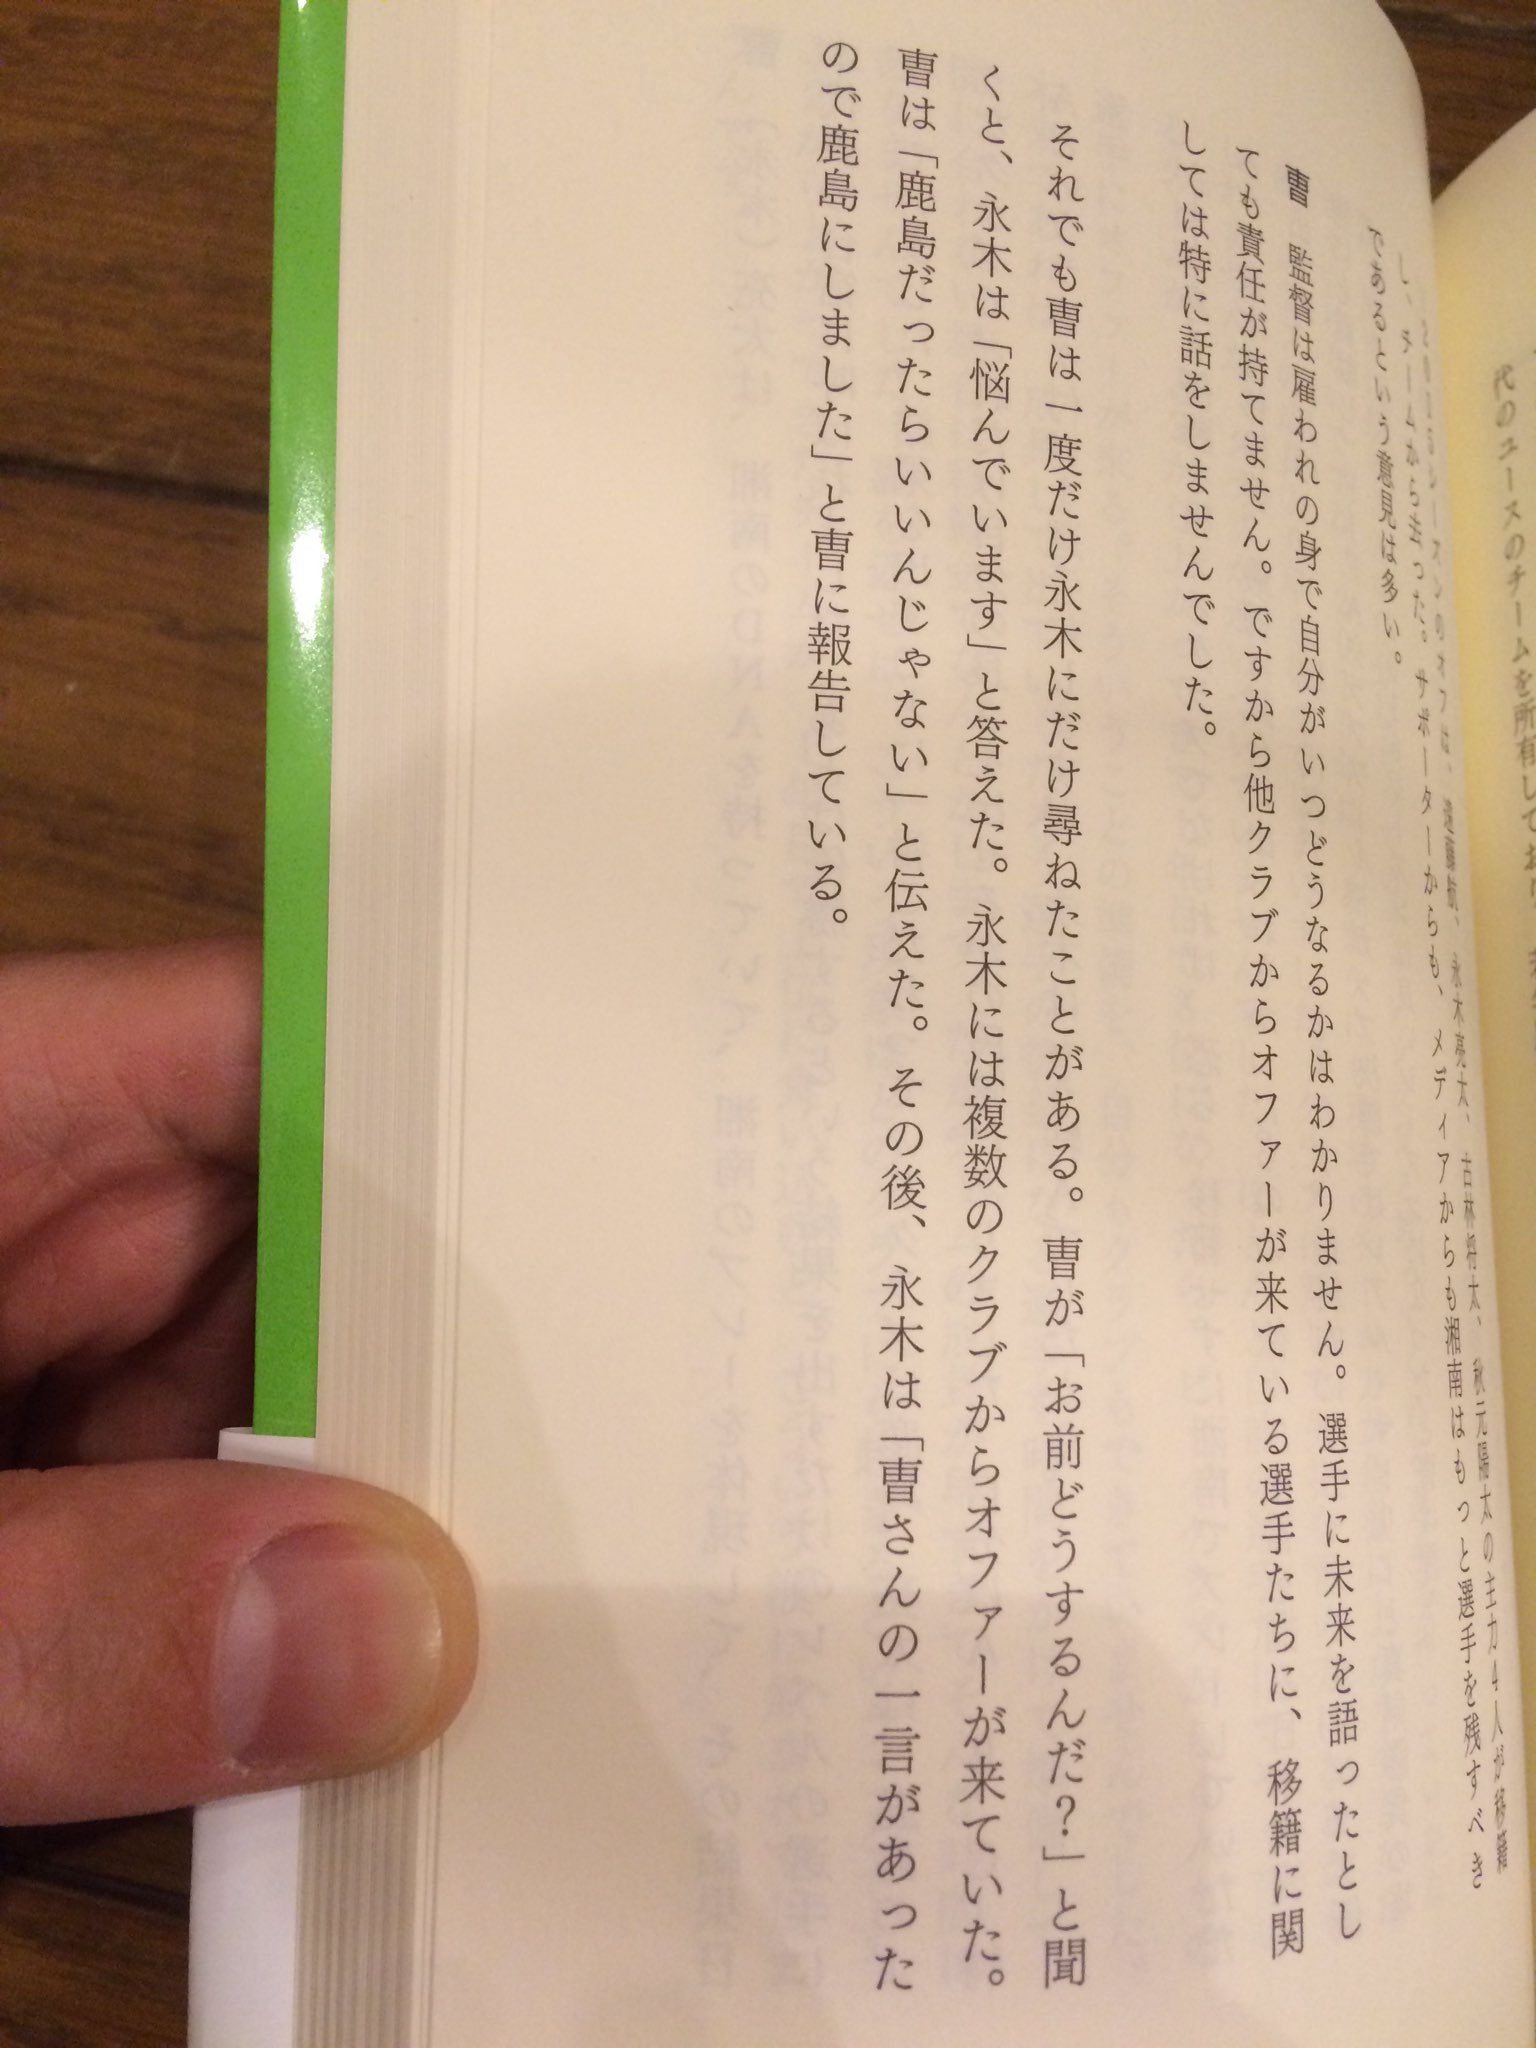 代のユースのチームを所有して
2015シーズンのオフは、遠藤航、永木亮太、古林将太、秋元陽太の主力4人が移籍
し、チームから去った。サポーターからも、メディアからも湘南はもっと選手を残すべき
であるという意見は多い。
曺　監督は雇われの身で自分がいつどうなるかはわかりません。選手に未来を語ったとし
ても責任が持てません。ですから他クラブからオファーが来ている選手たちに、移籍に関
しては特に話をしませんでした。
それでも曺は一度だけ永木にだけ尋ねたことがある。曺が「お前どうするんだ？」と聞
くと、永木は「悩んでいます」と答えた。永木には複数のクラブからオファーが来ていた。
曺は「鹿島だったらいいんじゃない」と伝えた。その後、永木は「曺さんの一言があった
ので鹿島にしました」と曺に報告している。